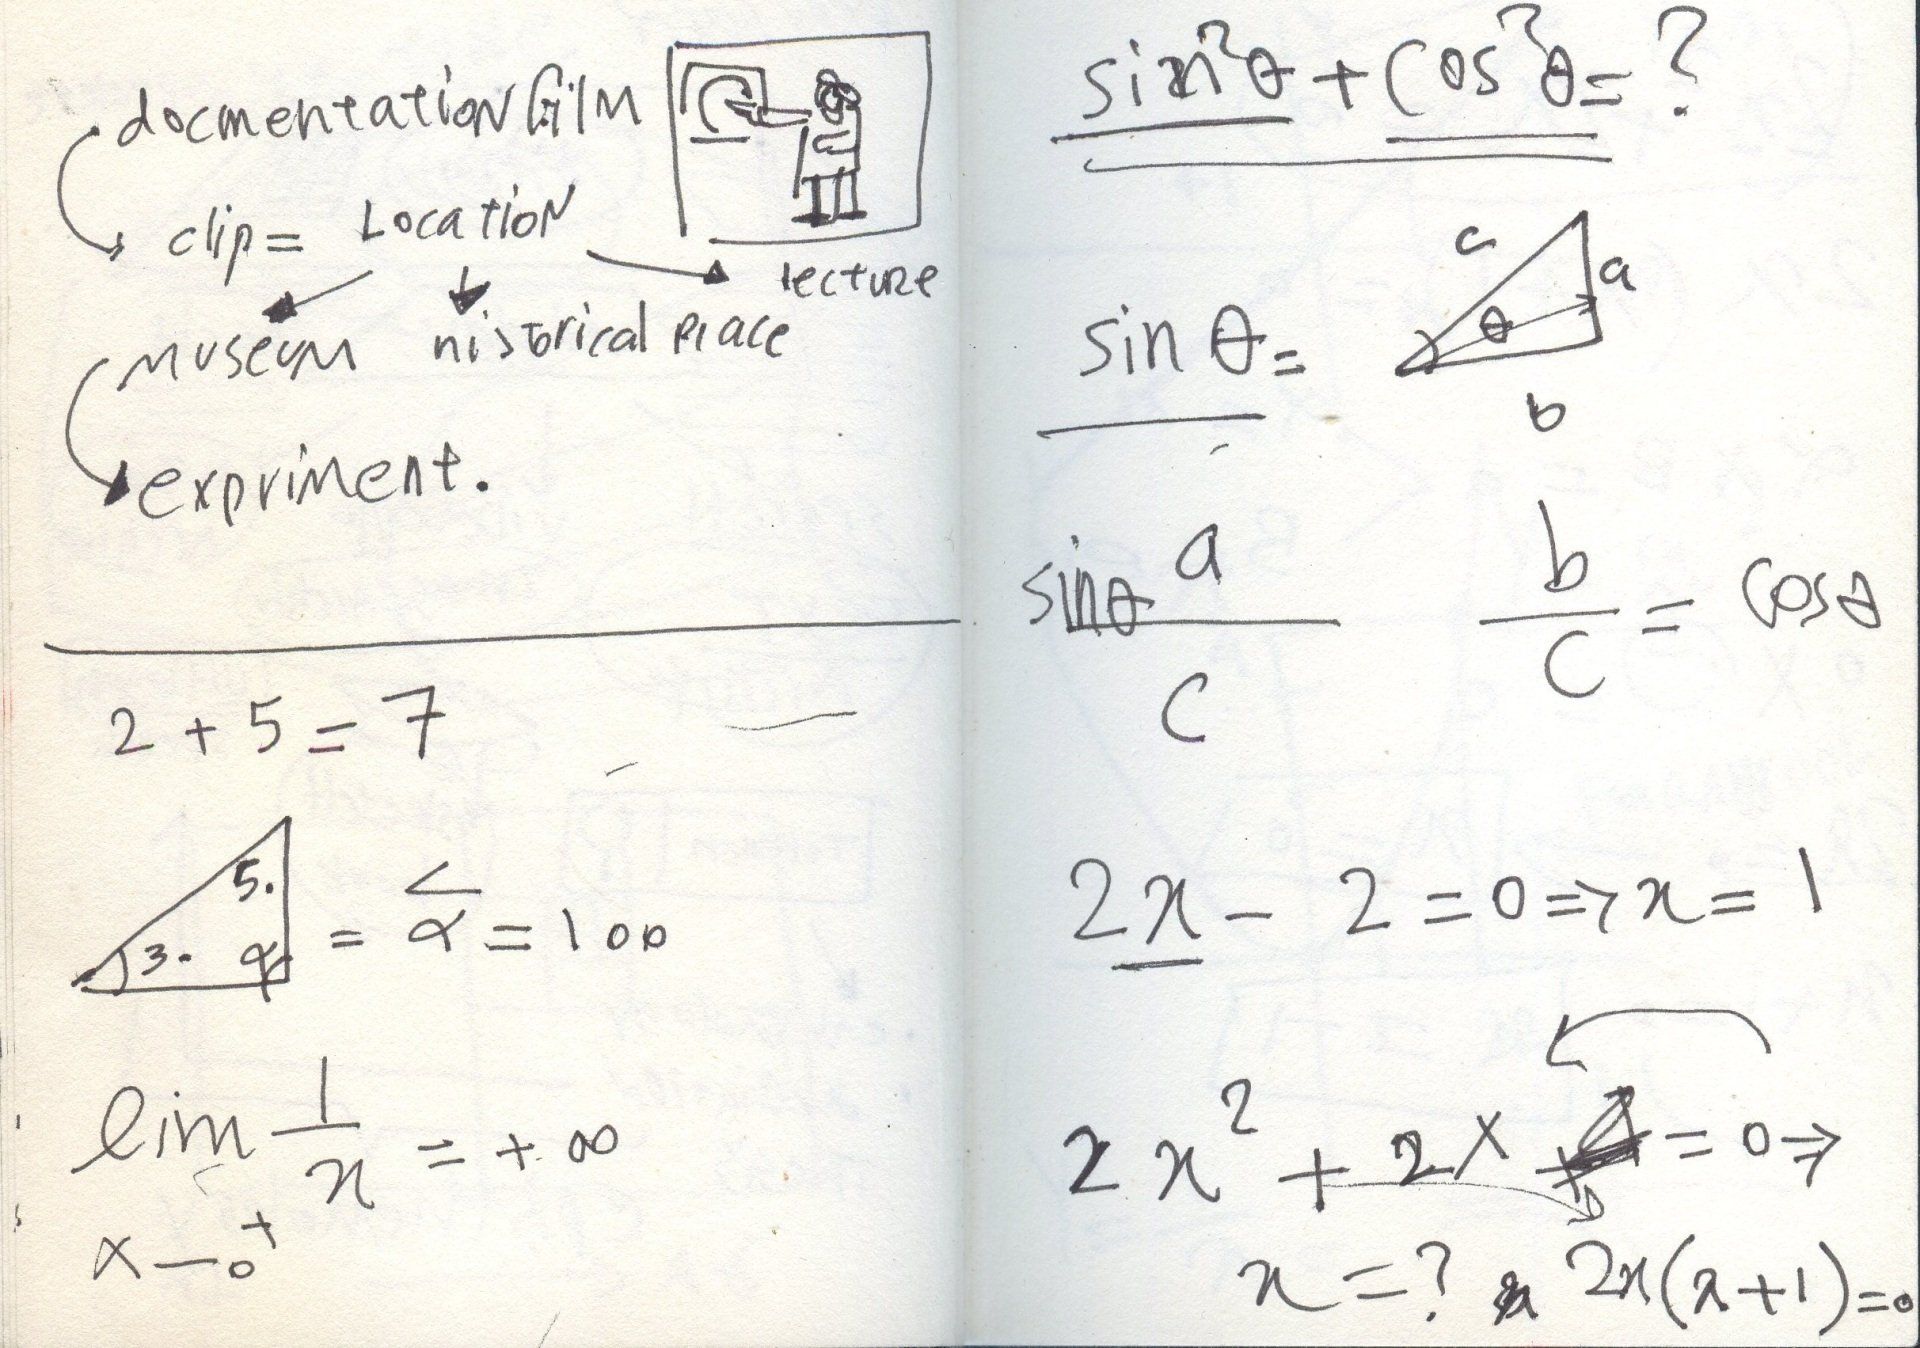 docmentation film
clip = Location
lecture
museum historical place
expriment.
2 + 5 = 7
5.
3. α
= α = 100
lim 1/x = +∞
x→0⁺
sin²θ + cos²θ = ?
c
a
θ
sin θ =
b
sinθ a/c b/c = cosθ
2x - 2 = 0 ⇒ x = 1
2x² + 2x = 0 ⇒
x = ? 2x(x+1)=0